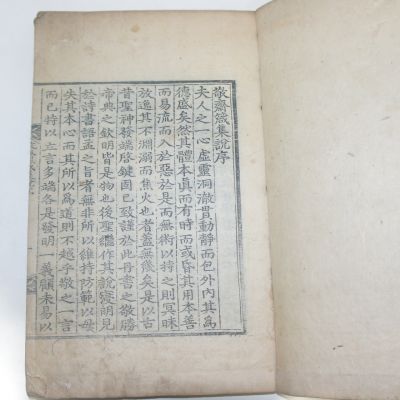 敬齋箴集說序
夫人之一心虛靈洞澈貫動靜而包外內其為
德盛矣然其體本真而有時而或昏其用本善
而易流而入於惡於是而無術以持之則冥昧
放逸其不淵溺而焦火也者蓋無幾矣是以古
昔聖神發端啓鍵固已致謹於此丹書之敬勝
帝典之欽明皆是物也後聖繼作其說寖明見
於詩書語孟之旨者無非所以維持防範以毋
失其本心而其所以為道則不越乎敬之一言
而已持以立言多端各是發明一義顧未易以